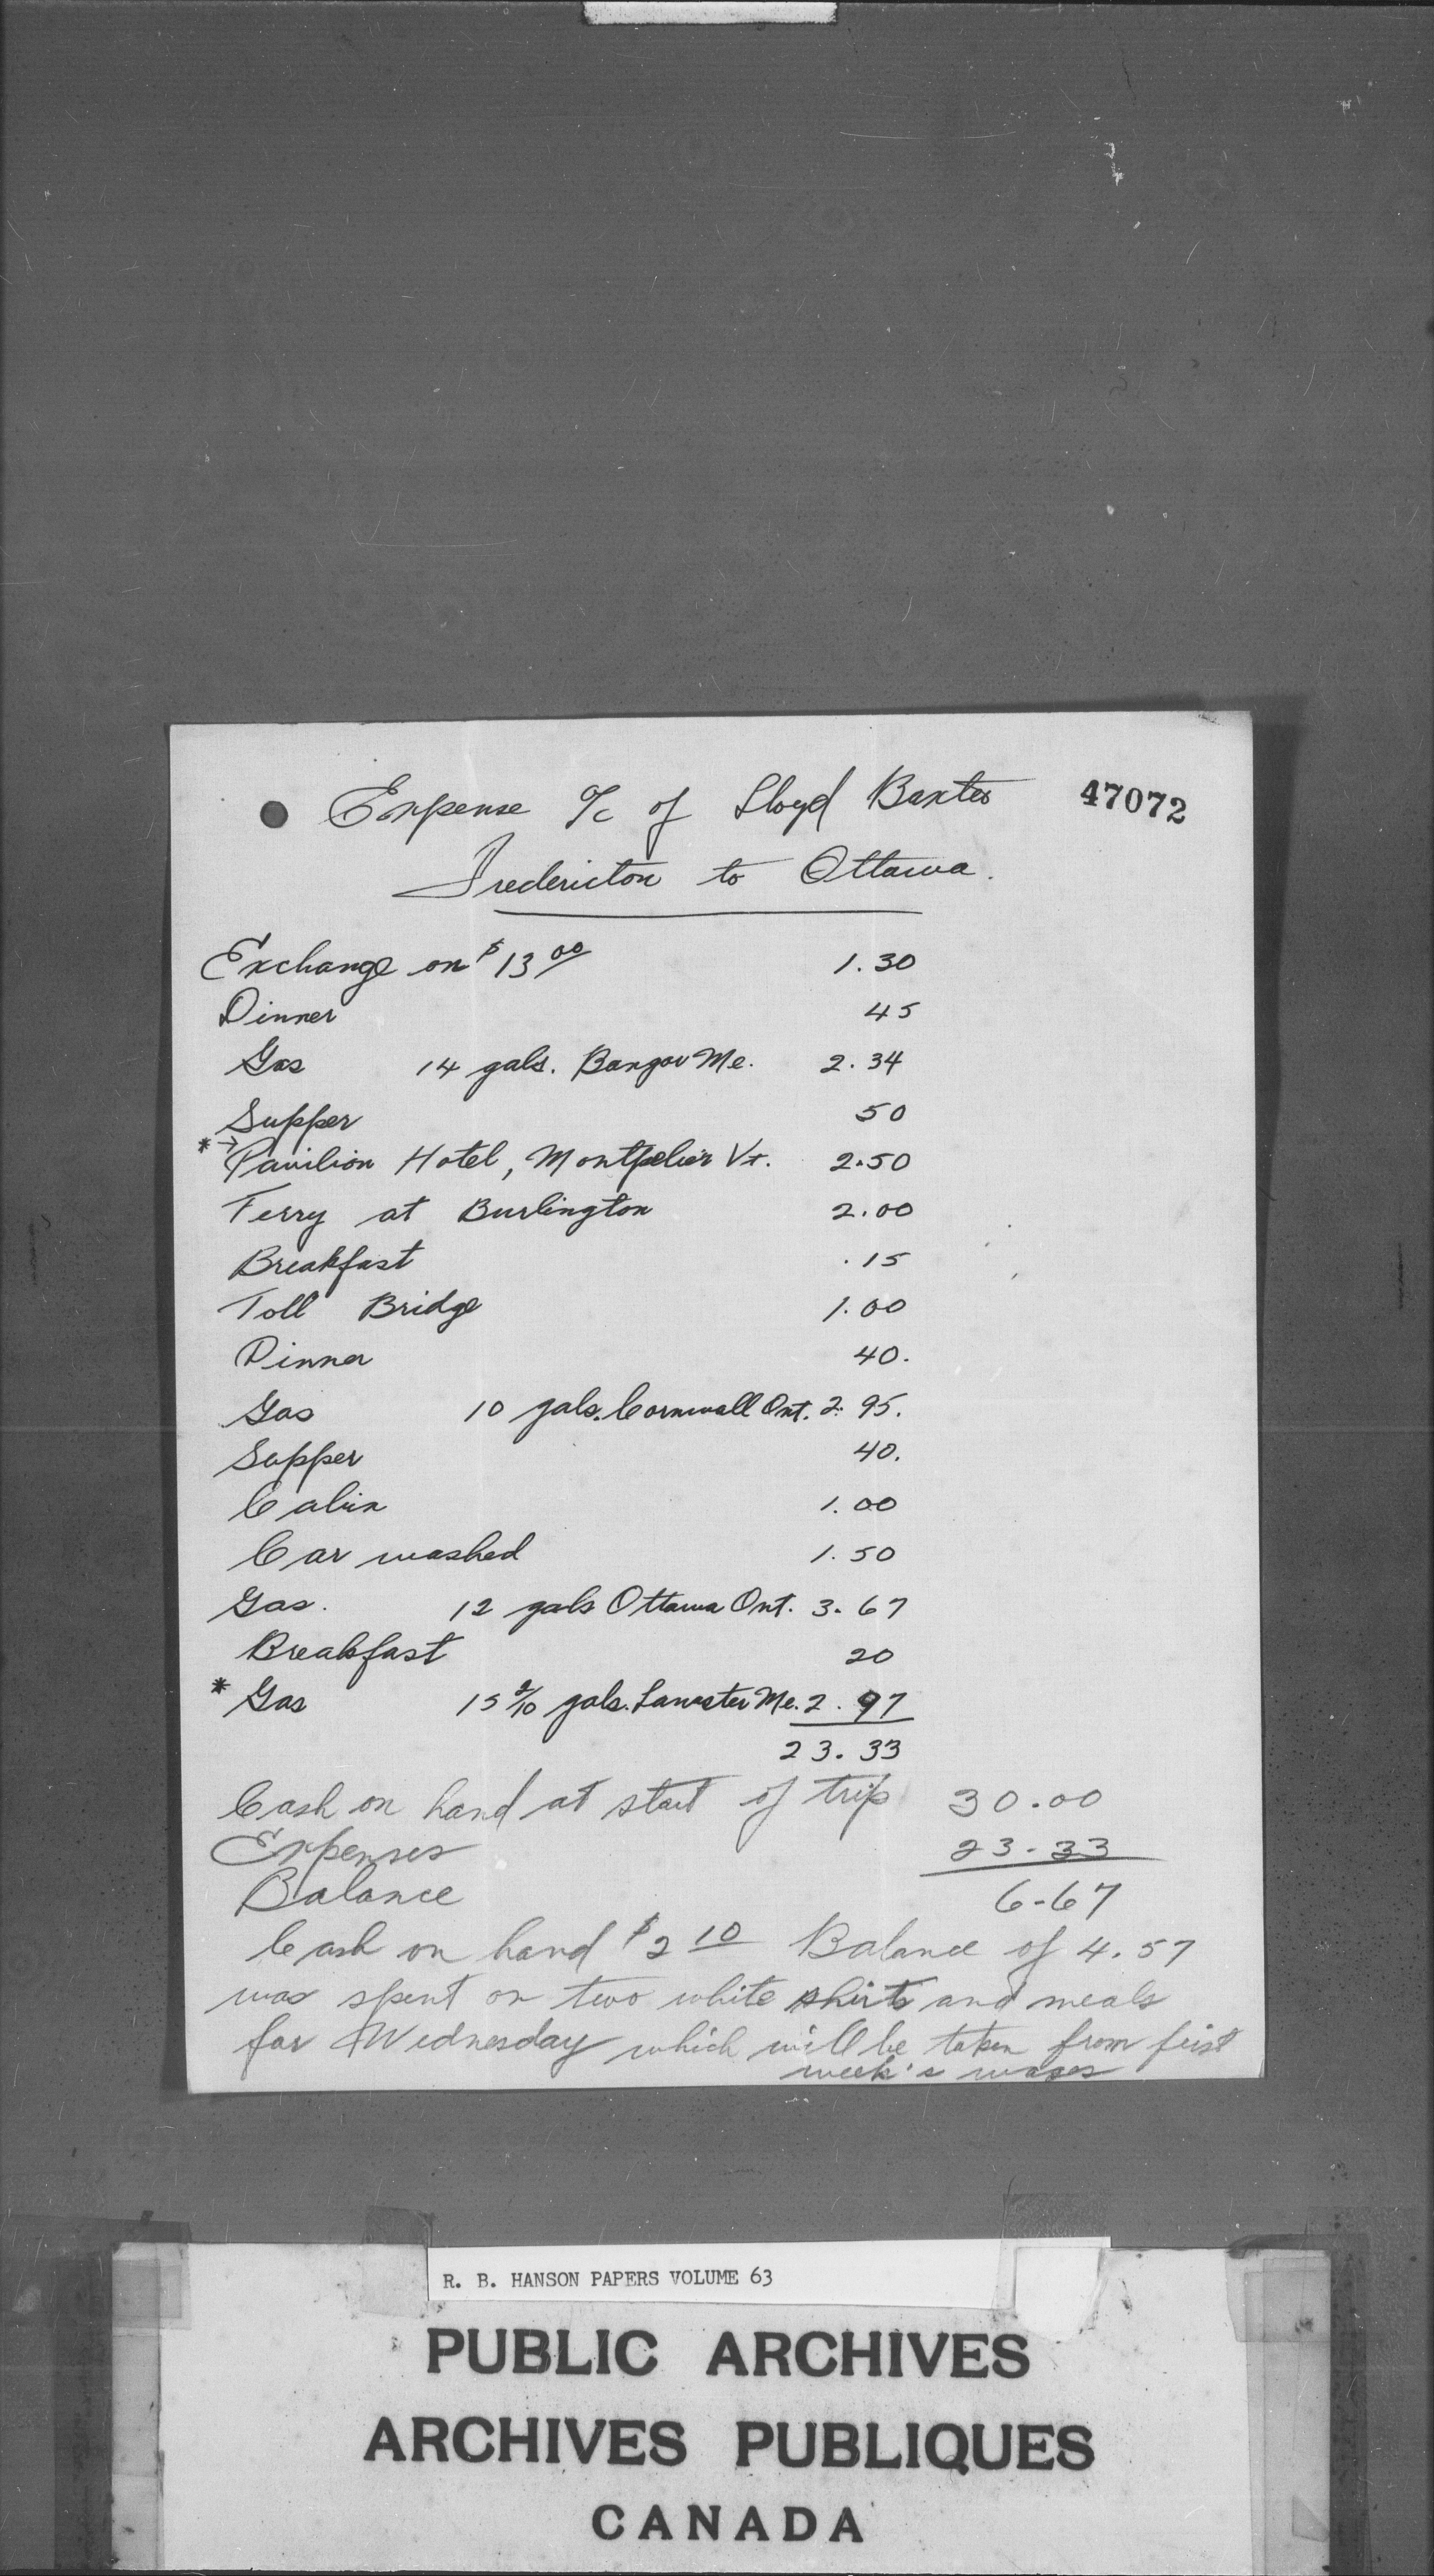 Expense a/c of Lloyd Baxter 47072
Fredericton to Ottawa.
Exchange on $13 00 1.30
Dinner 45
Gas 14 gals. Bangor Me. 2.34
Supper 50
*→ Pavilion Hotel, Montpelier Vt. 2.50
Ferry at Burlington 2.00
Breakfast .15
Toll Bridge 1.00
Dinner 40.
Gas 10 gals. Cornwall Ont. 2.95.
Supper 40.
Cabin 1.00
Car washed 1.50
Gas. 12 gals Ottawa Ont. 3.67
Breakfast 20
* Gas gals. Me. 2.97
23.33
Cash on hand at start of trip 30.00
Expenses 23.33
Balance 6.67
Cash on hand $2 10 Balance of 4.57
was spent on two white shirts and meals
for Wednesday which will be taken from first
week's wages
R. B. HANSON PAPERS VOLUME 63
PUBLIC ARCHIVES
ARCHIVES PUBLIQUES
CANADA